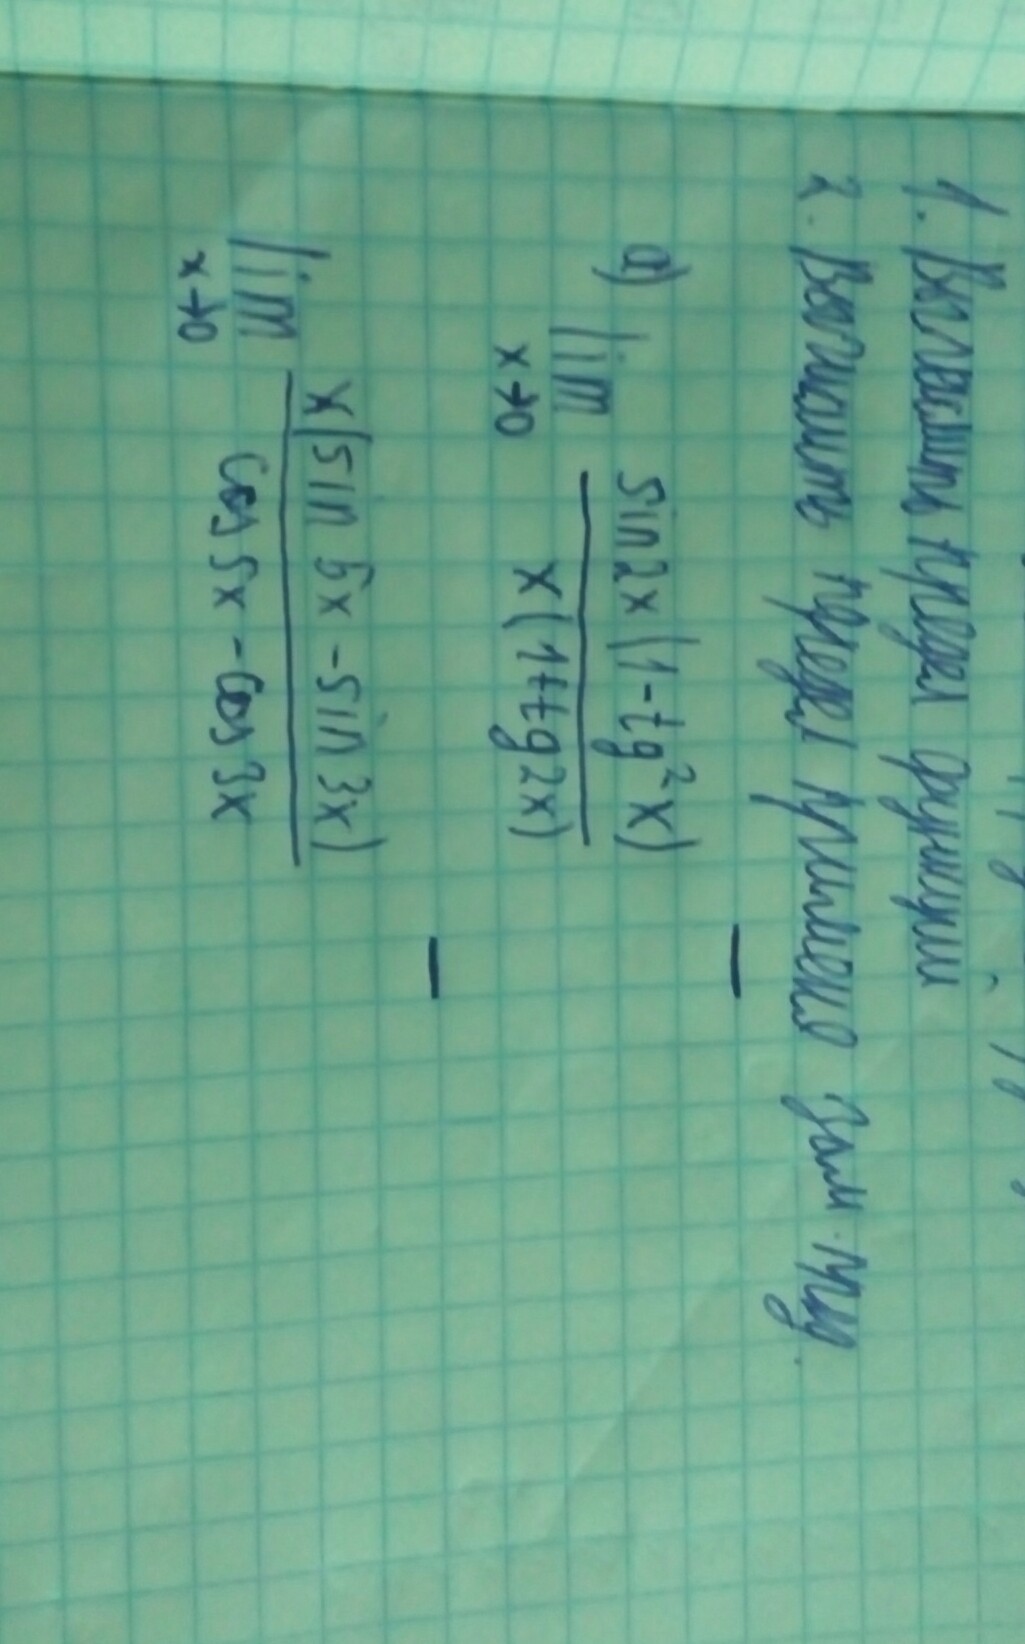 1. Вычислить предел функции
2. Вычислить предел применяя зам. пред.
а) lim x→0 sin2x(1-tg²x) / x(1+tg2x)
lim x→0 x(sin 5x - sin 3x) / cos 5x - cos 3x